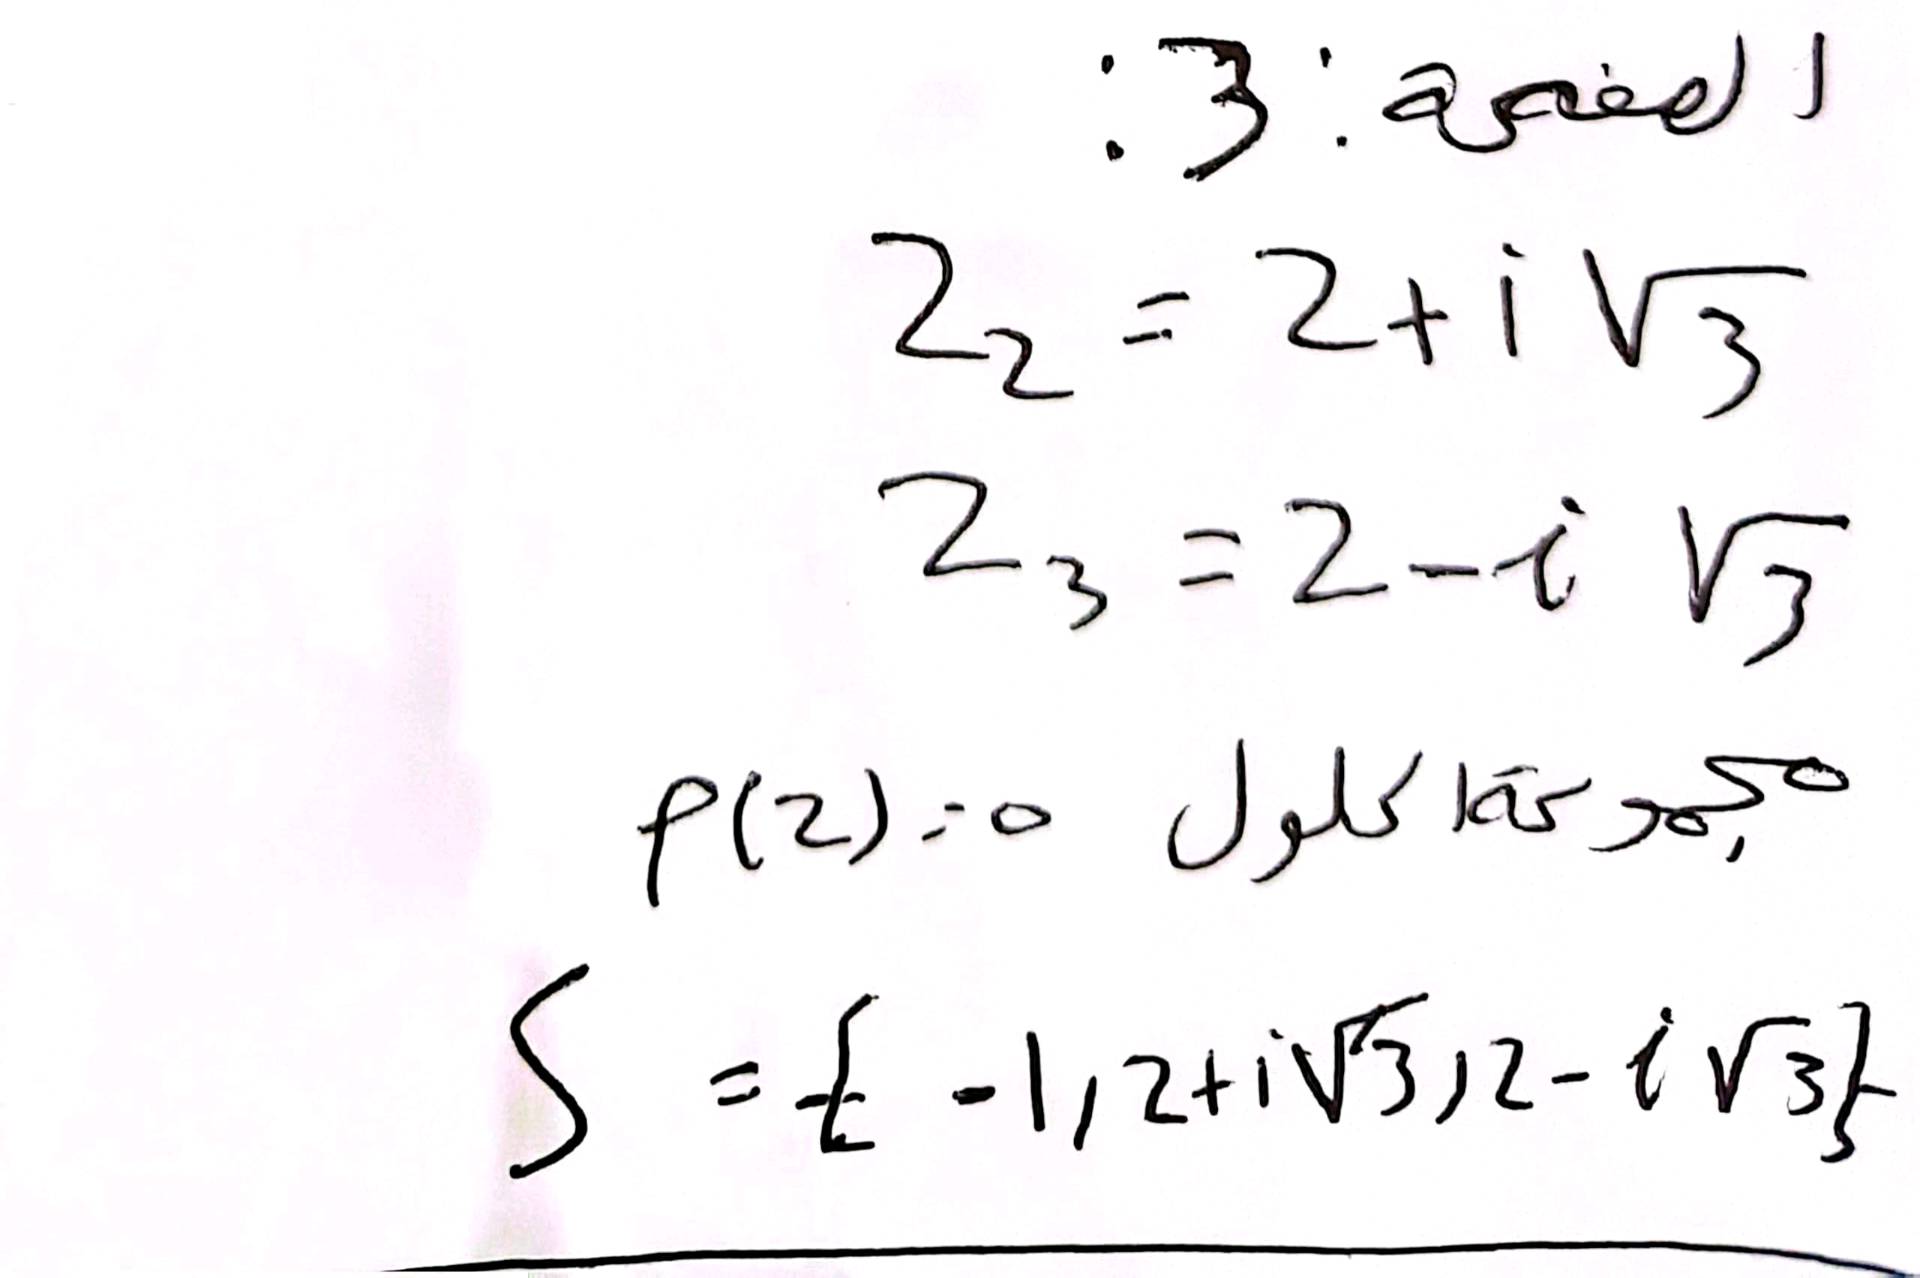 الصفحة : 3 :
Z₂ = 2 + i √3
Z₃ = 2 - i √3
مجموعة حلول P(Z) = 0
S = { -1, 2+i√3, 2-i√3}